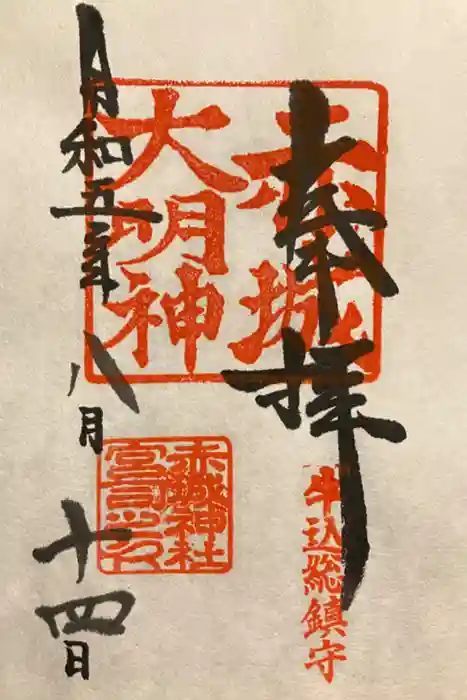 奉拝
赤城
大明神
牛込総鎮守
赤城神社
宮司之印
令和五年
八月
十四日